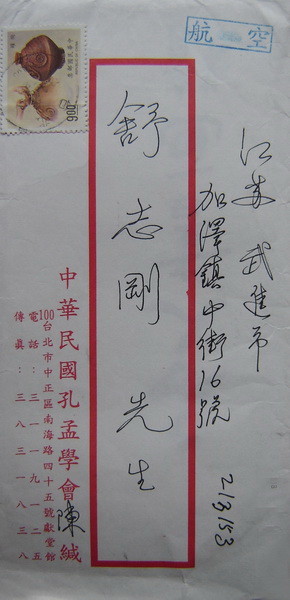 航空
江苏 武進市
加澤鎮中街16號
213153
舒志剛 先生
中華民國孔孟學會陳緘
100台北市中正區南海路四十五號獻堂館
電話：三一一九一二五
傳真：三八三一八三八
900